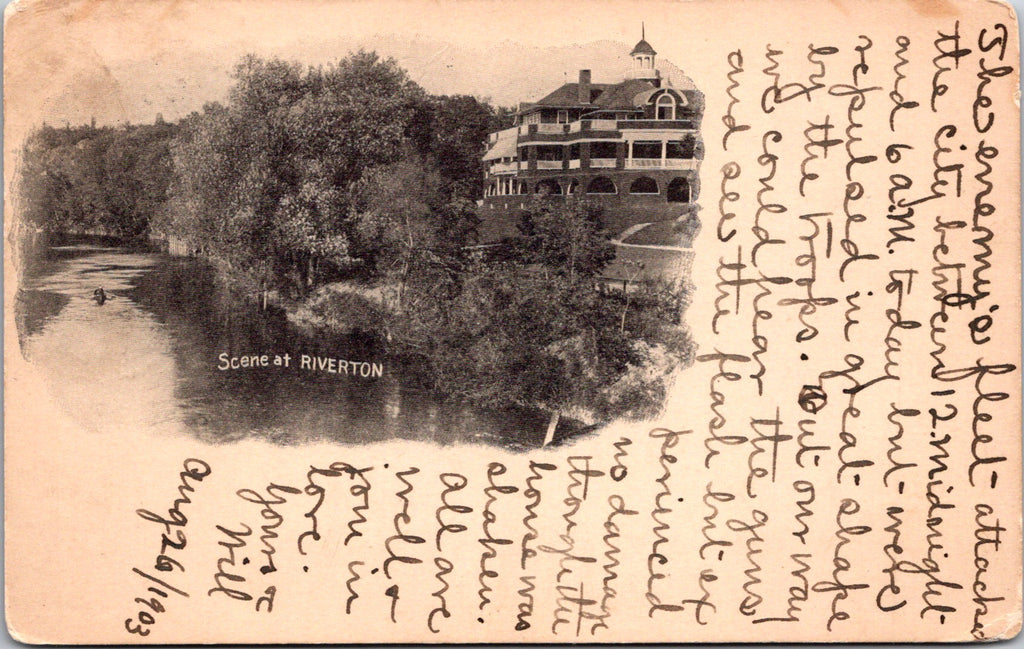 Scene at RIVERTON
The enemy's fleet attacked
the city between 12. midnight
and 6 a.m. today but were
repulsed in great shape
by the troops. Out our way
we could hear the guns
and see the flash but ex
perienced
no damage
though the
house was
shaken.
All are
well &
join in
love.
Yours &c
Will
Aug 26/1903